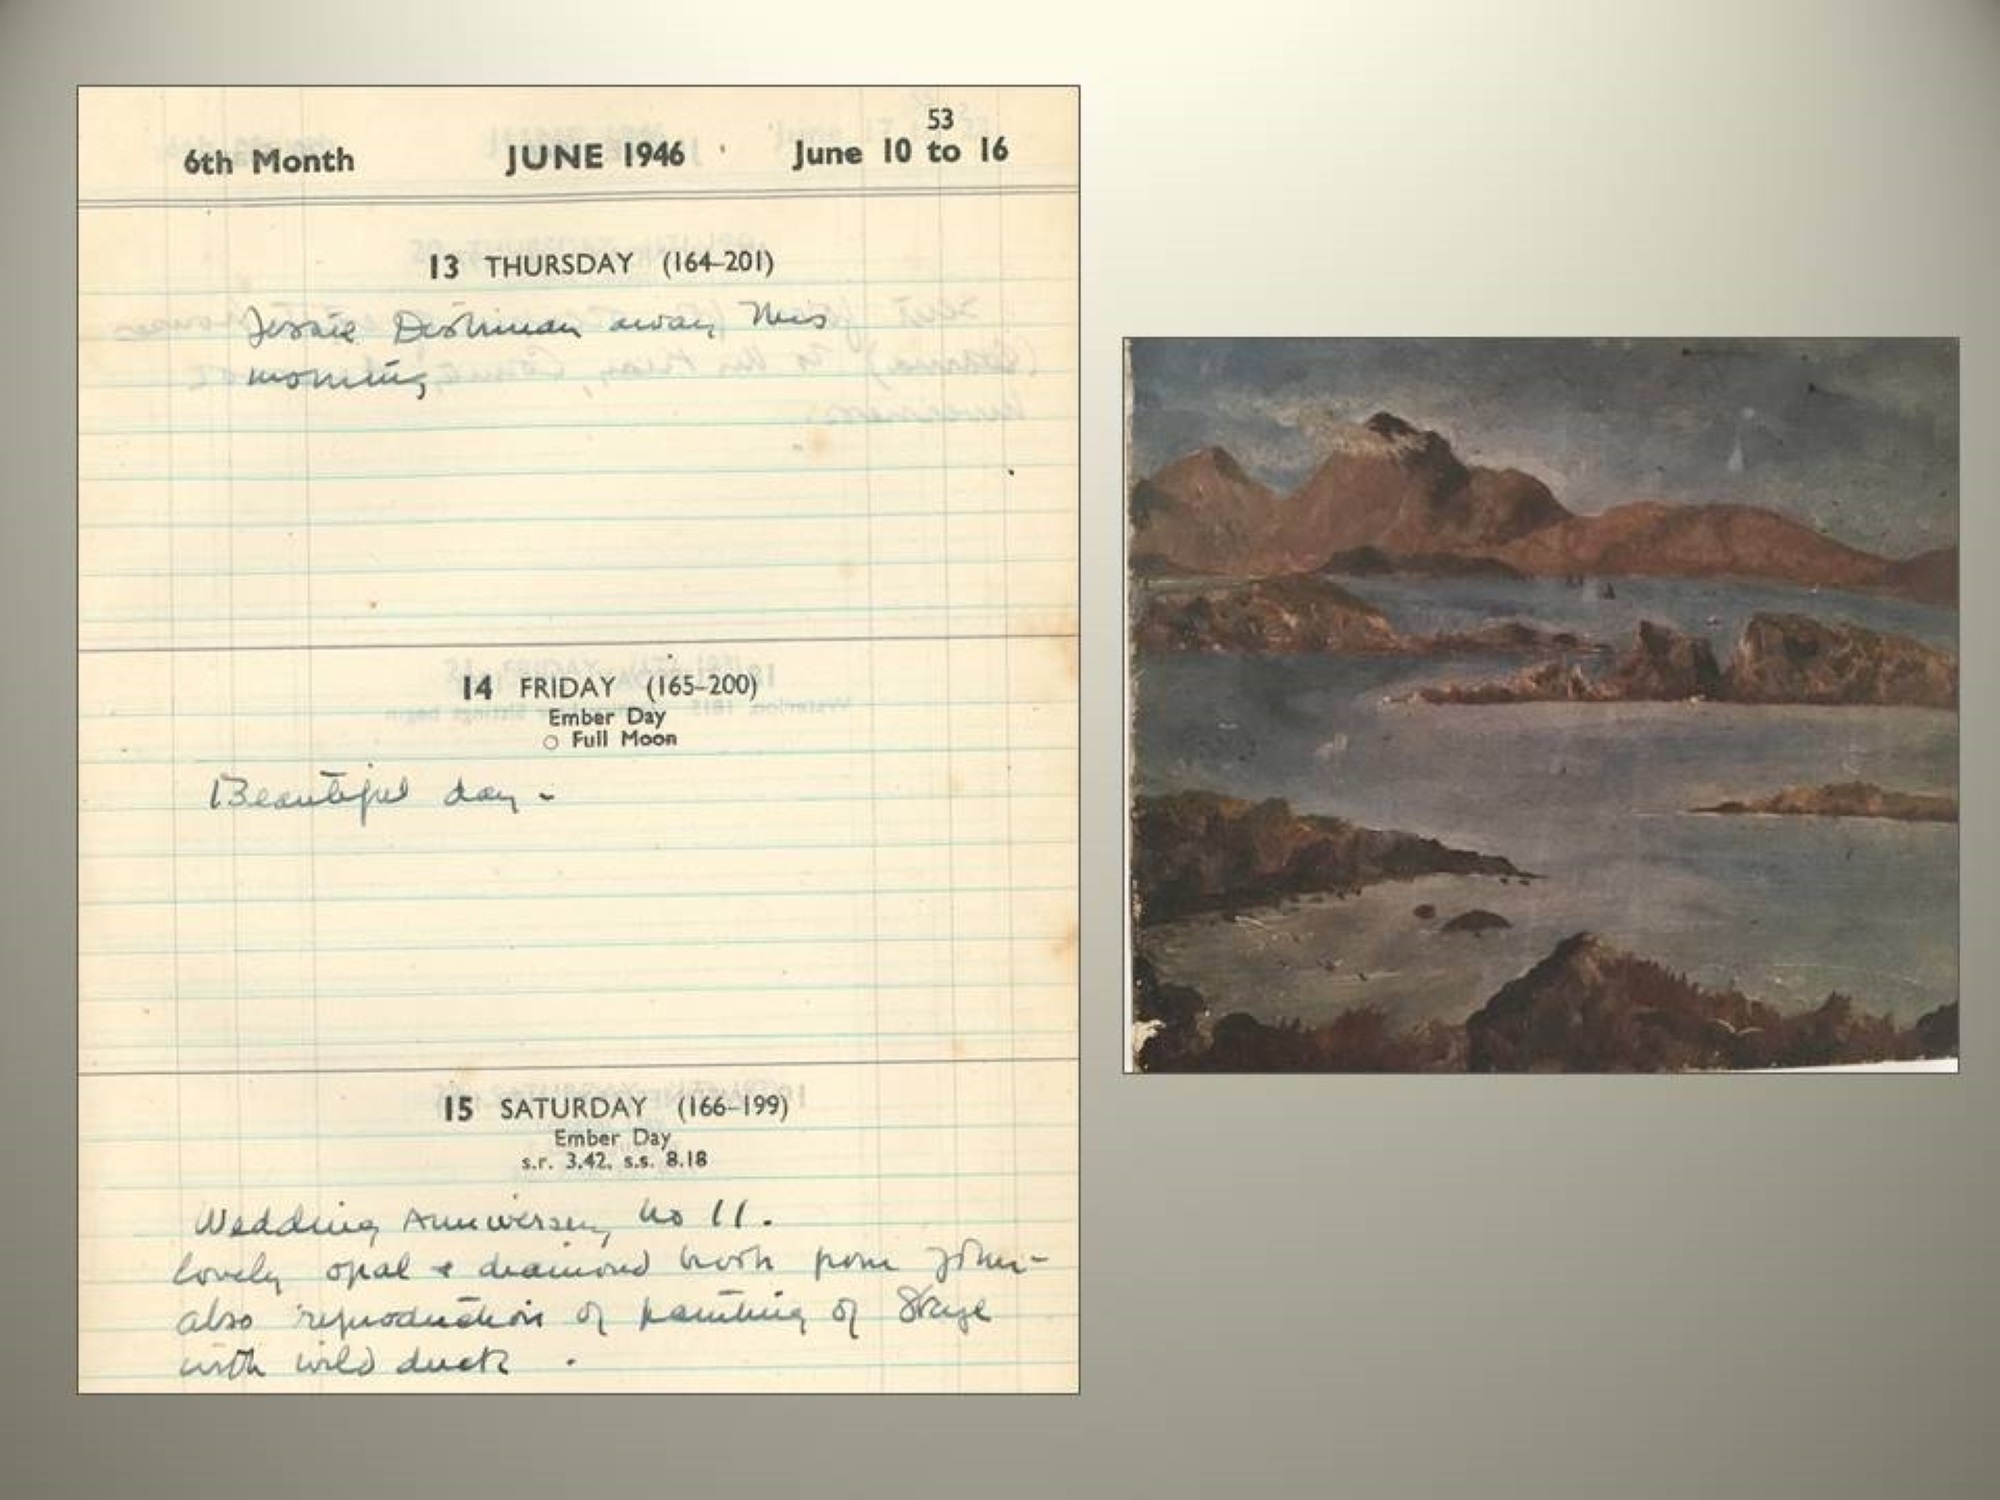 53
6th Month JUNE 1946 June 10 to 16
13 THURSDAY (164-201)
Jessie away this
morning
14 FRIDAY (165-200)
Ember Day
○ Full Moon
Beautiful day -
15 SATURDAY (166-199)
Ember Day
s.r. 3.42, s.s. 8.18
Wedding Anniversary no 11.
lovely opal & diamond broch from John -
also reproduction of painting of Skye
with wild duck .